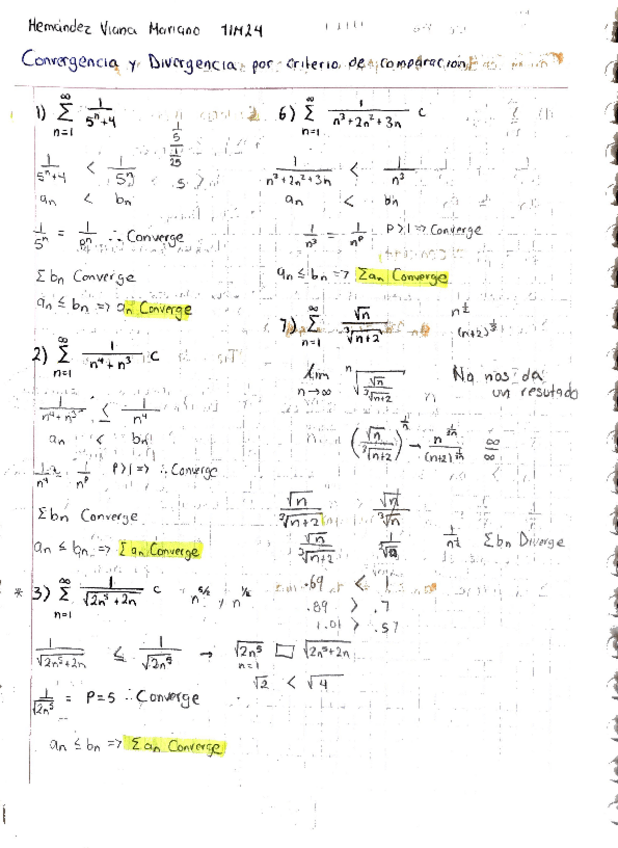 Hernández Viana Mariano 1IM24
Convergencia y Divergencia por criterio de comparación
1) ∑ n=1 ∞ 1/(5^n+4)
1/5
1/25
1/(5^n+4) < 1/5^n
an < bn
1/5^n = 1/p^n ∴ Converge
∑bn Converge
an ≤ bn => an Converge
2) ∑ n=1 ∞ 1/(n^4+n^3) C
1/(n^4+n^3) ≤ 1/n^4
an < bn
1/n^4 = 1/n^p P>1 => ∴ Converge
∑bn Converge
an ≤ bn => ∑an Converge
* 3) ∑ n=1 ∞ 1/√(2n^5+2n) C n^(5/2) y n^(1/2)
1/√(2n^5+2n) ≤ 1/√(2n^5) → √(2n^5) □ √(2n^5+2n)
n=1
√2 < √4
1/√(2n^5) = P=5 ∴ Converge
an ≤ bn => ∑an Converge
6) ∑ n=1 ∞ 1/(n^3+2n^2+3n) C
1/(n^3+2n^2+3n) < 1/n^3
an < bn
1/n^3 = 1/n^p P>1 => Converge
an ≤ bn => ∑an Converge
7) ∑ n=1 ∞ √n/∛(n+2) n^(1/2) (n+2)^(1/3)
lim n→∞ ⁿ√(√n/∛(n+2)) No nos da
un resutado
(√n/∛(n+2))^(1/n) → n^(1/2n)/(n+2)^(1/3n) ∞/∞
√n/∛(n+2) √n/∛n
√n/∛(n+2) ∑bn Diverge
.69 < 1
.89 > .7
1.01 > .57